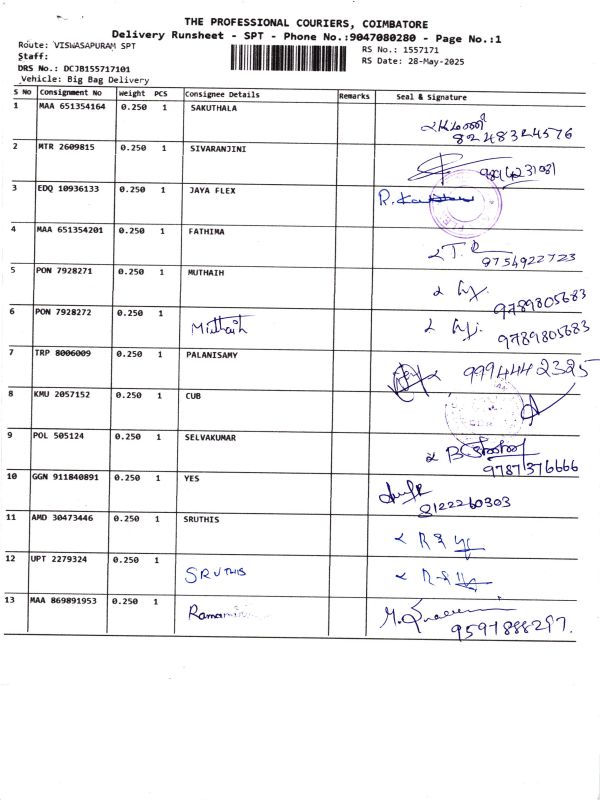 THE PROFESSIONAL COURIERS, COIMBATORE
Delivery Runsheet - SPT - Phone No.:9047080280 - Page No.:1
Route: VISWASAPURAM SPT
RS No.: 1557171
Staff:
RS Date: 28-May-2025
DRS No.: DCJB155717101
Vehicle: Big Bag Delivery
S No Consignment No Weight PCS Consignee Details Remarks Seal & Signature
1 MAA 651354164 0.250 1 SAKUTHALA
8248324576
2 MTR 2609815 0.250 1 SIVARANJINI
3 EDQ 10936133 0.250 1 JAYA FLEX
4 MAA 651354201 0.250 1 FATHIMA
9754922723
5 PON 7928271 0.250 1 MUTHAIH
9789805683
6 PON 7928272 0.250 1 Muthaih
9789805683
7 TRP 8006009 0.250 1 PALANISAMY 9994442325
8 KMU 2057152 0.250 1 CUB
9 POL 505124 0.250 1 SELVAKUMAR
9787376666
10 GGN 911840891 0.250 1 YES
8122260303
11 AMD 30473446 0.250 1 SRUTHIS
12 UPT 2279324 0.250 1 SRUTHIS
13 MAA 869891953 0.250 1